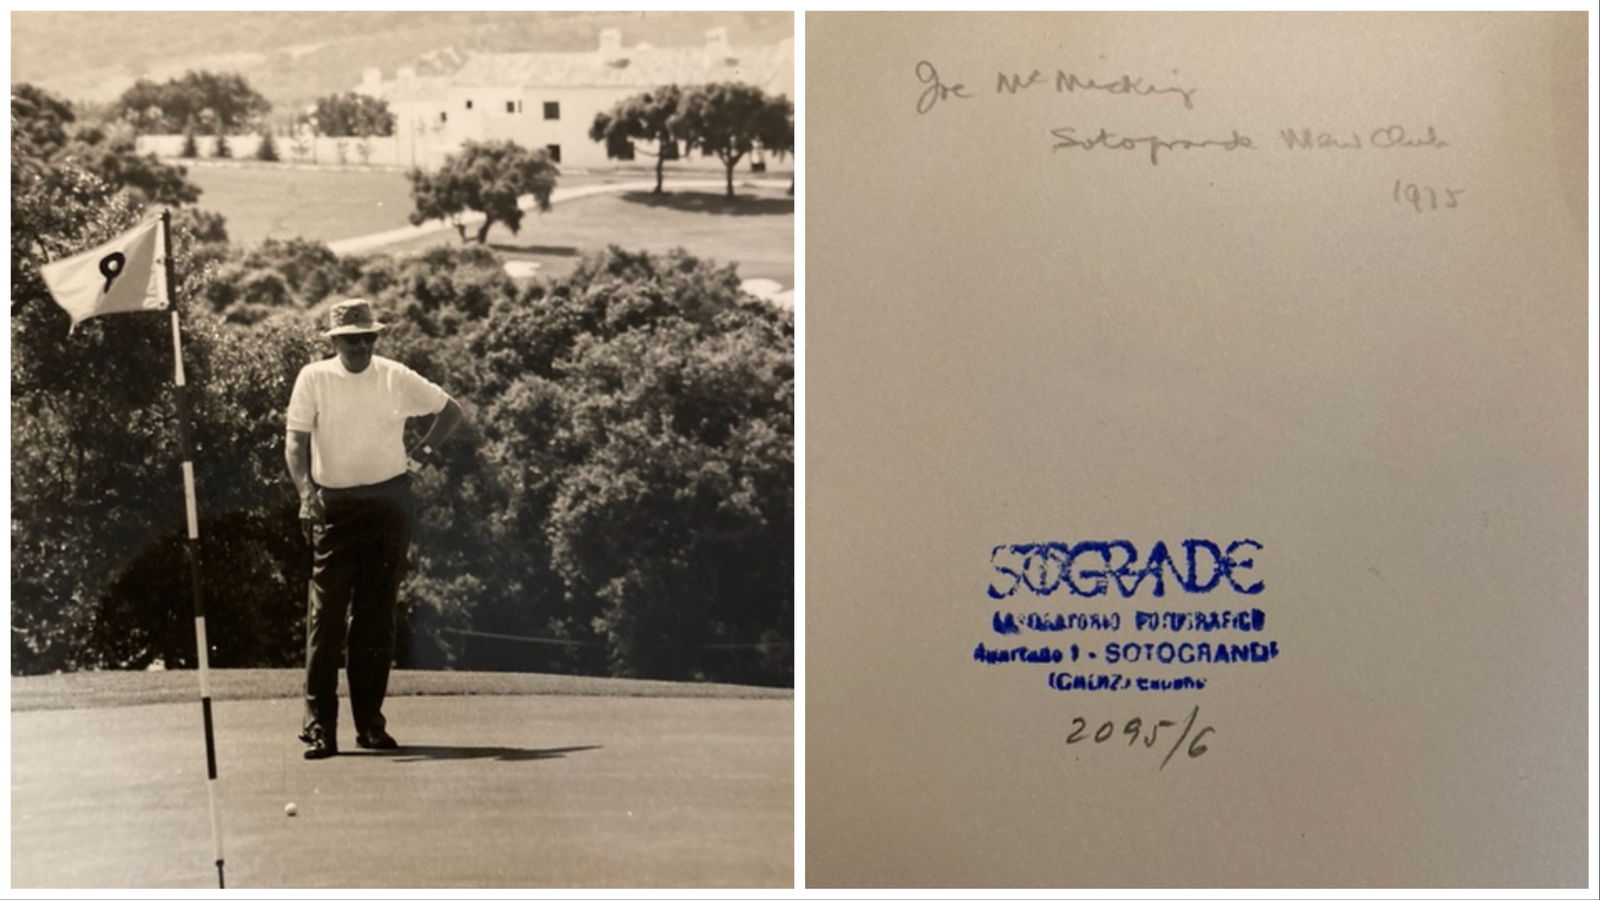 9
Joe McMicking
Sotogrande New Club
1975
SOTOGRANDE
LABORATORIO FOTOGRAFICO
Apartado 1 - SOTOGRANDE
(CADIZ) España
2095/6